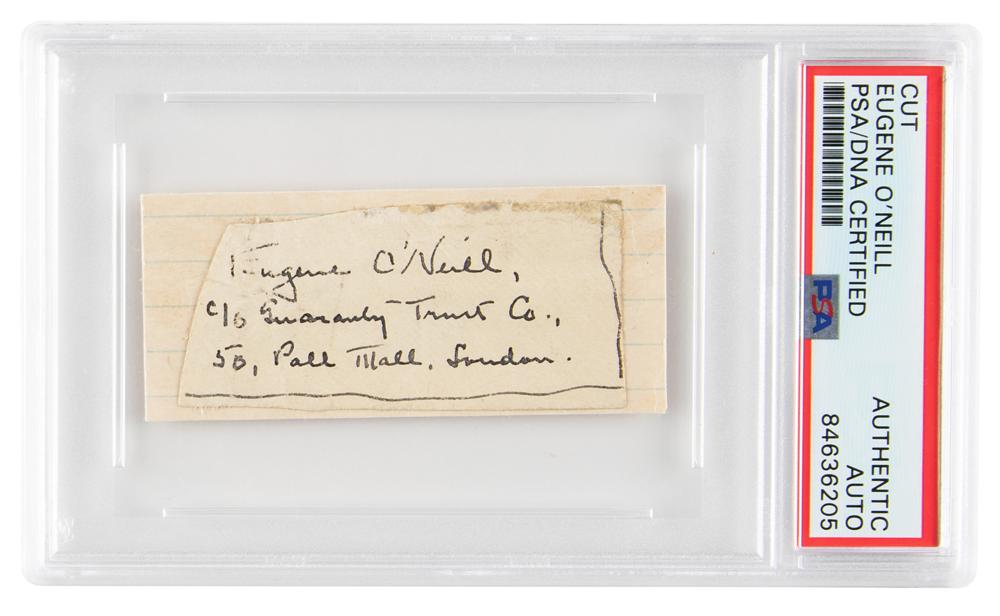 Eugene O'Neill,
c/o Guaranty Trust Co.,
50, Pall Mall, London.
CUT
EUGENE O'NEILL
PSA/DNA CERTIFIED
PSA
AUTHENTIC
AUTO
84636205